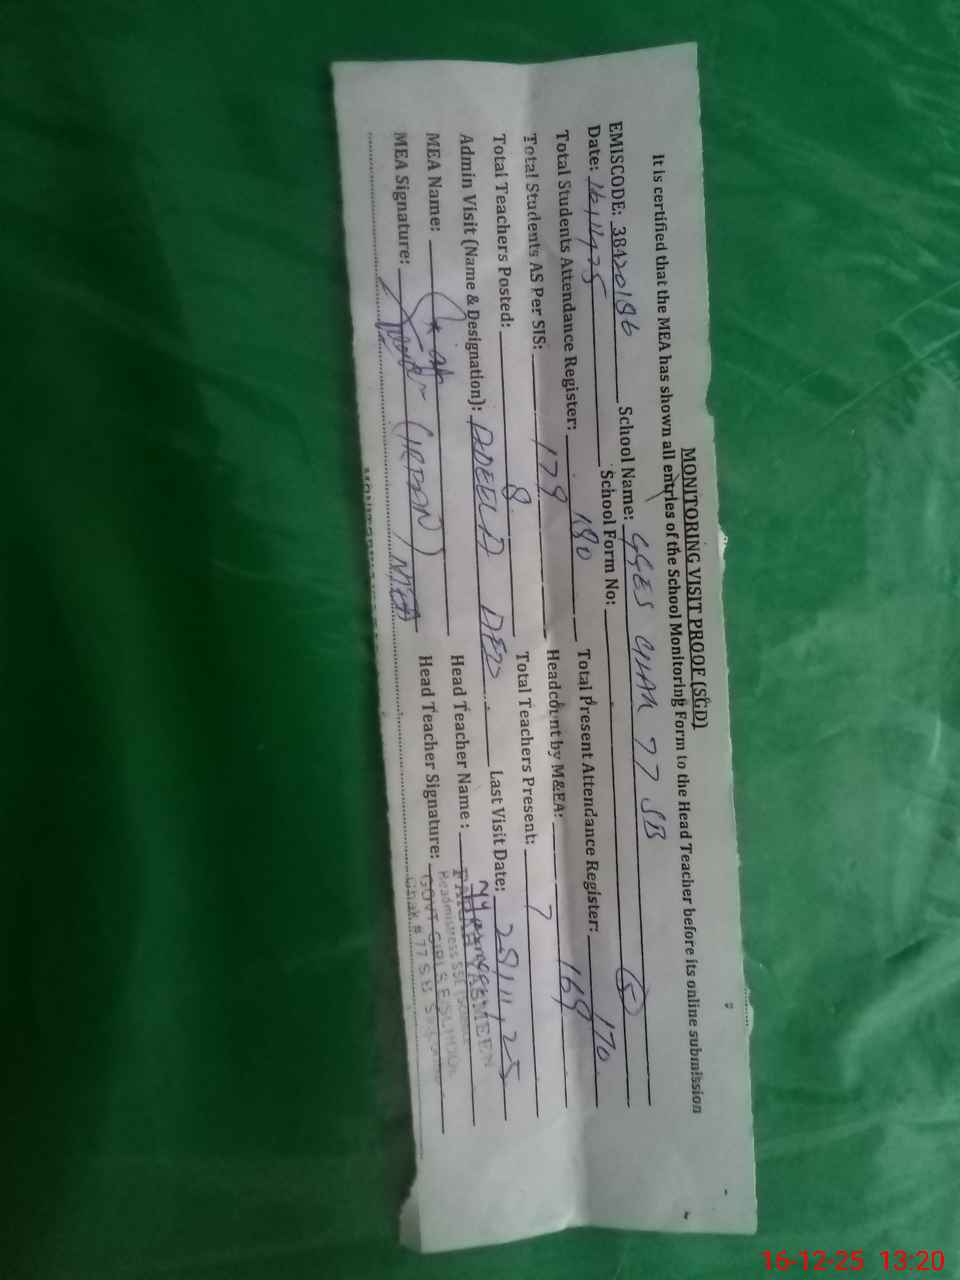 MONITORING VISIT PROOF (SGD)
It is certified that the MEA has shown all entries of the School Monitoring Form to the Head Teacher before its online submission
EMISCODE: 38420186 School Name: GGES CHAK 77 SB
Date: School Form No: 5
Total Students Attendance Register: 180 Total Present Attendance Register: 170
Total Students AS Per SIS: 179 Headcount by M&EA: 169
Total Teachers Posted: 8 Total Teachers Present: 7
Admin Visit (Name & Designation): Last Visit Date: 28/11/25
MEA Name: Head Teacher Name :
MEA Signature: (IRFAN) MEA Head Teacher Signature:
YASMEEN
Headmistress
GOVT GIRLS E/SCHOOL
Chak # 77 S B
16-12-25 13:20